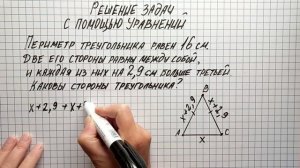 РЕШЕНИЕ ЗАДАЧ
С ПОМОЩЬЮ УРАВНЕНИЙ
ПЕРИМЕТР ТРЕУГОЛЬНИКА РАВЕН 16 СМ.
ДВЕ ЕГО СТОРОНЫ РАВНЫ МЕЖДУ СОБОЙ,
И КАЖДАЯ ИЗ НИХ НА 2,9 СМ БОЛЬШЕ ТРЕТЬЕЙ.
КАКОВЫ СТОРОНЫ ТРЕУГОЛЬНИКА?
x+2,9+x+
B
x+2,9
x+2,9
A
x
C